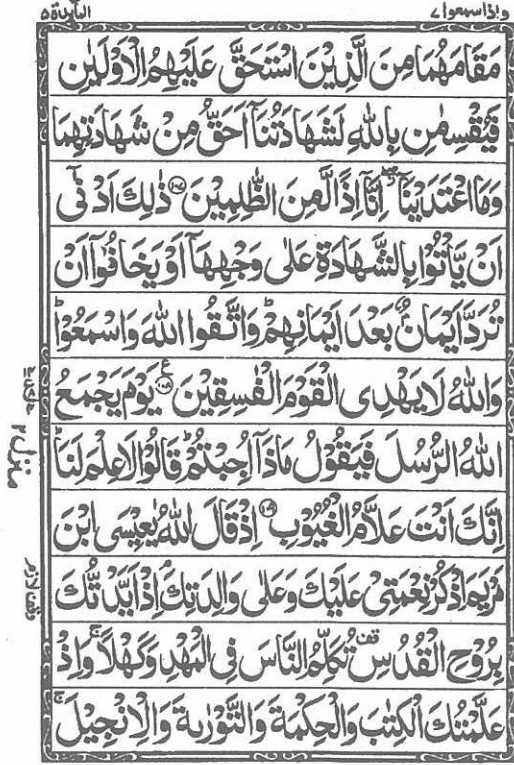 واذاسمعوا ٧
المآئدة ٥
مَقَامَهُمَا مِنَ الَّذِيْنَ اسْتَحَقَّ عَلَيْهِمُ الْاَوْلَيٰنِ
فَيُقْسِمٰنِ بِاللّٰهِ لَشَهَادَتُنَاۤ اَحَقُّ مِنْ شَهَادَتِهِمَا
وَمَا اعْتَدَيْنَاۤ ۖ اِنَّاۤ اِذًا لَّمِنَ الظّٰلِمِيْنَ ۝١٠٧ ذٰلِكَ اَدْنٰۤى
اَنْ يَّاْتُوْا بِالشَّهَادَةِ عَلٰى وَجْهِهَاۤ اَوْ يَخَافُوْۤا اَنْ
تُرَدَّ اَيْمَانٌۢ بَعْدَ اَيْمَانِهِمْ ؕ وَاتَّقُوا اللّٰهَ وَاسْمَعُوْا ؕ
وَاللّٰهُ لَا يَهْدِى الْقَوْمَ الْفٰسِقِيْنَ ۝١٠٨ ع يَوْمَ يَجْمَعُ
اللّٰهُ الرُّسُلَ فَيَقُوْلُ مَاذَاۤ اُجِبْتُمْ ؕ قَالُوْا لَا عِلْمَ لَنَا ؕ
اِنَّكَ اَنْتَ عَلَّامُ الْغُيُوْبِ ۝١٠٩ اِذْ قَالَ اللّٰهُ يٰعِيْسَى ابْنَ
مَرْيَمَ اذْكُرْ نِعْمَتِىْ عَلَيْكَ وَعَلٰى وَالِدَتِكَ ۘ اِذْ اَيَّدْتُّكَ
بِرُوْحِ الْقُدُسِ قف تُكَلِّمُ النَّاسَ فِى الْمَهْدِ وَكَهْلًا ۚ وَاِذْ
عَلَّمْتُكَ الْكِتٰبَ وَالْحِكْمَةَ وَالتَّوْرٰىةَ وَالْاِنْجِيْلَ ۚ
منزل ٢
وقف لازم